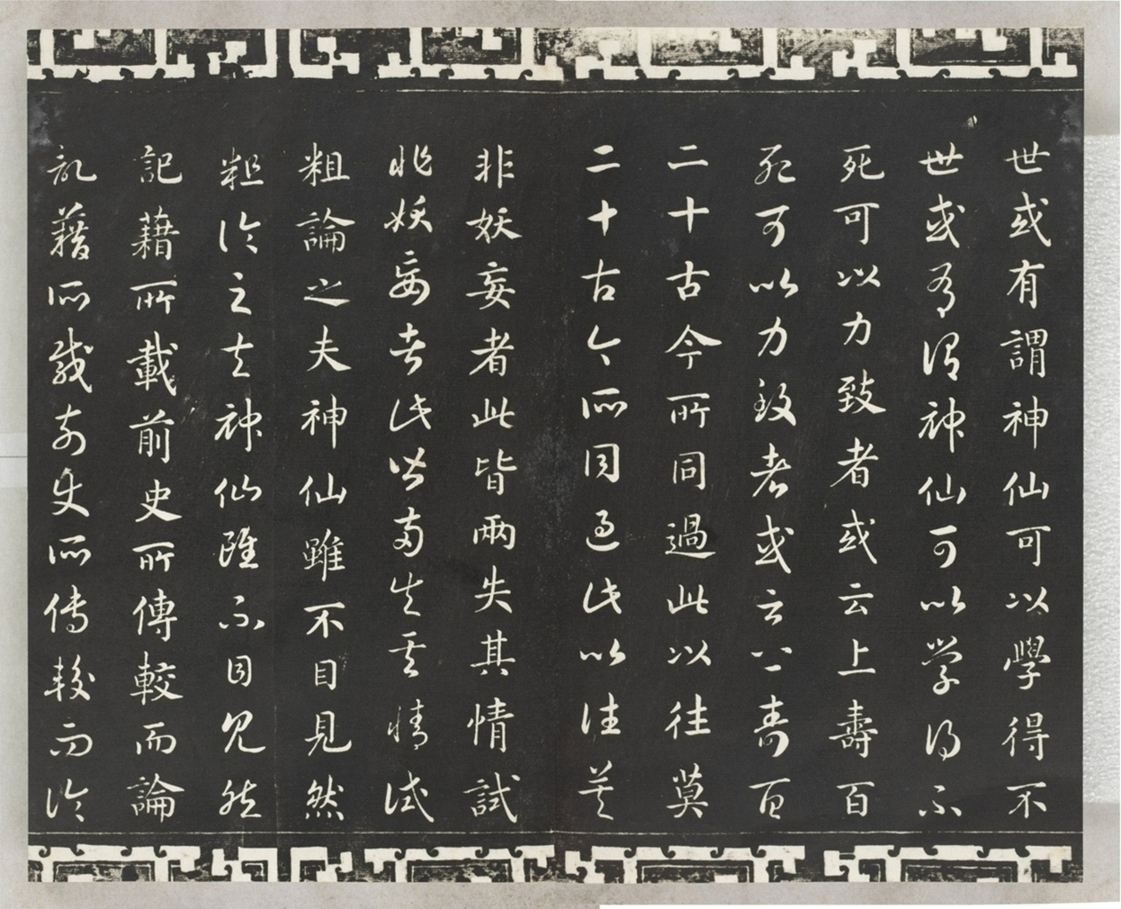 世或有謂神仙可以學得不
世或有謂神仙可以学得不
死可以力致者或云上壽百
死可以力致者或云上壽百
二十古今所同過此以往莫
二十古今所同過此以往莫
非妖妄者此皆兩失其情試
非妖妄者此皆兩失其情試
粗論之夫神仙雖不目見然
粗論之夫神仙雖不目見然
記藉所載前史所傳較而論
記藉所載前史所傳較而論